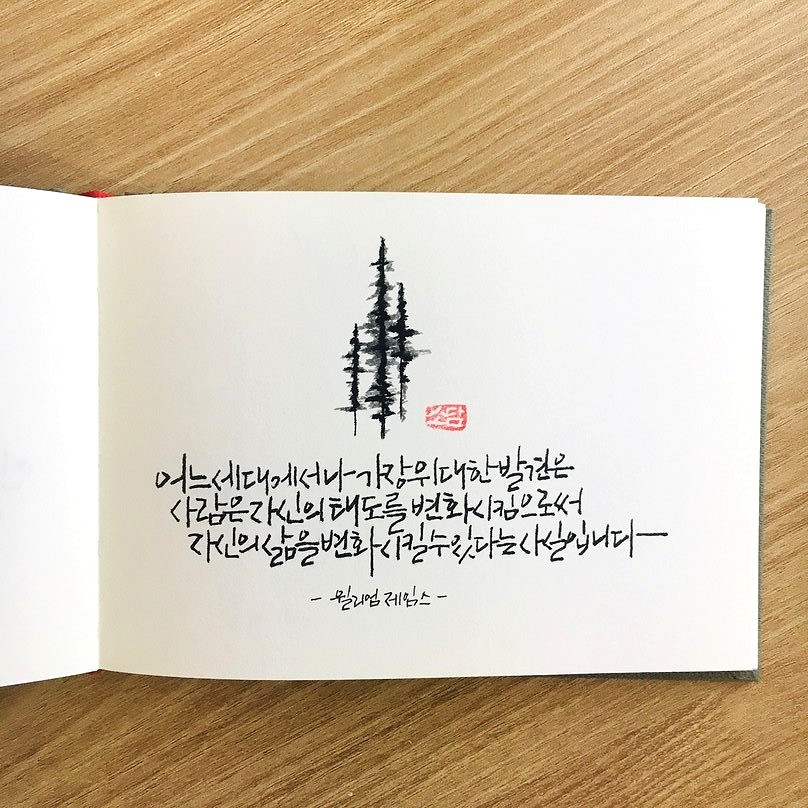 소담
어느 세대에서나 가장 위대한 발견은
사람은 자신의 태도를 변화시킴으로써
자신의 삶을 변화시킬 수 있다는 사실입니다
- 윌리엄 제임스 -